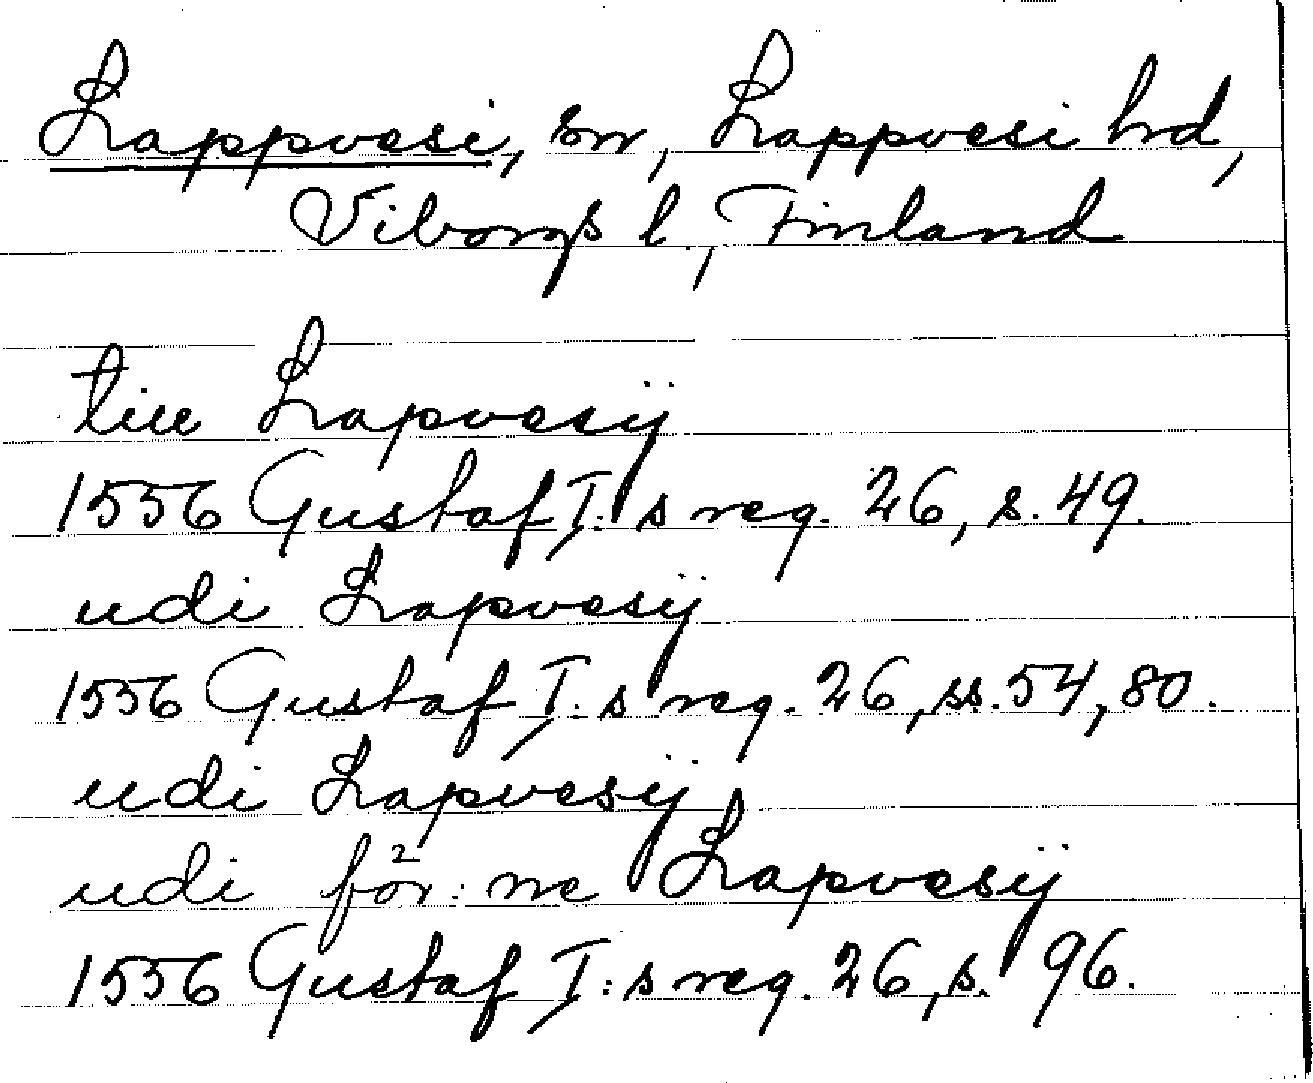 Lappvesi, sn, Lappvesi hd,
Viborgs l., Finland
till Lapvesij
1556 Gustaf I:s reg. 26, s. 49.
udi Lapvesij
1556 Gustaf I:s reg. 26, ss. 54, 80.
udi Lapvesij
udi för:ne Lapvesij
1556 Gustaf I:s reg. 26, s. 96.